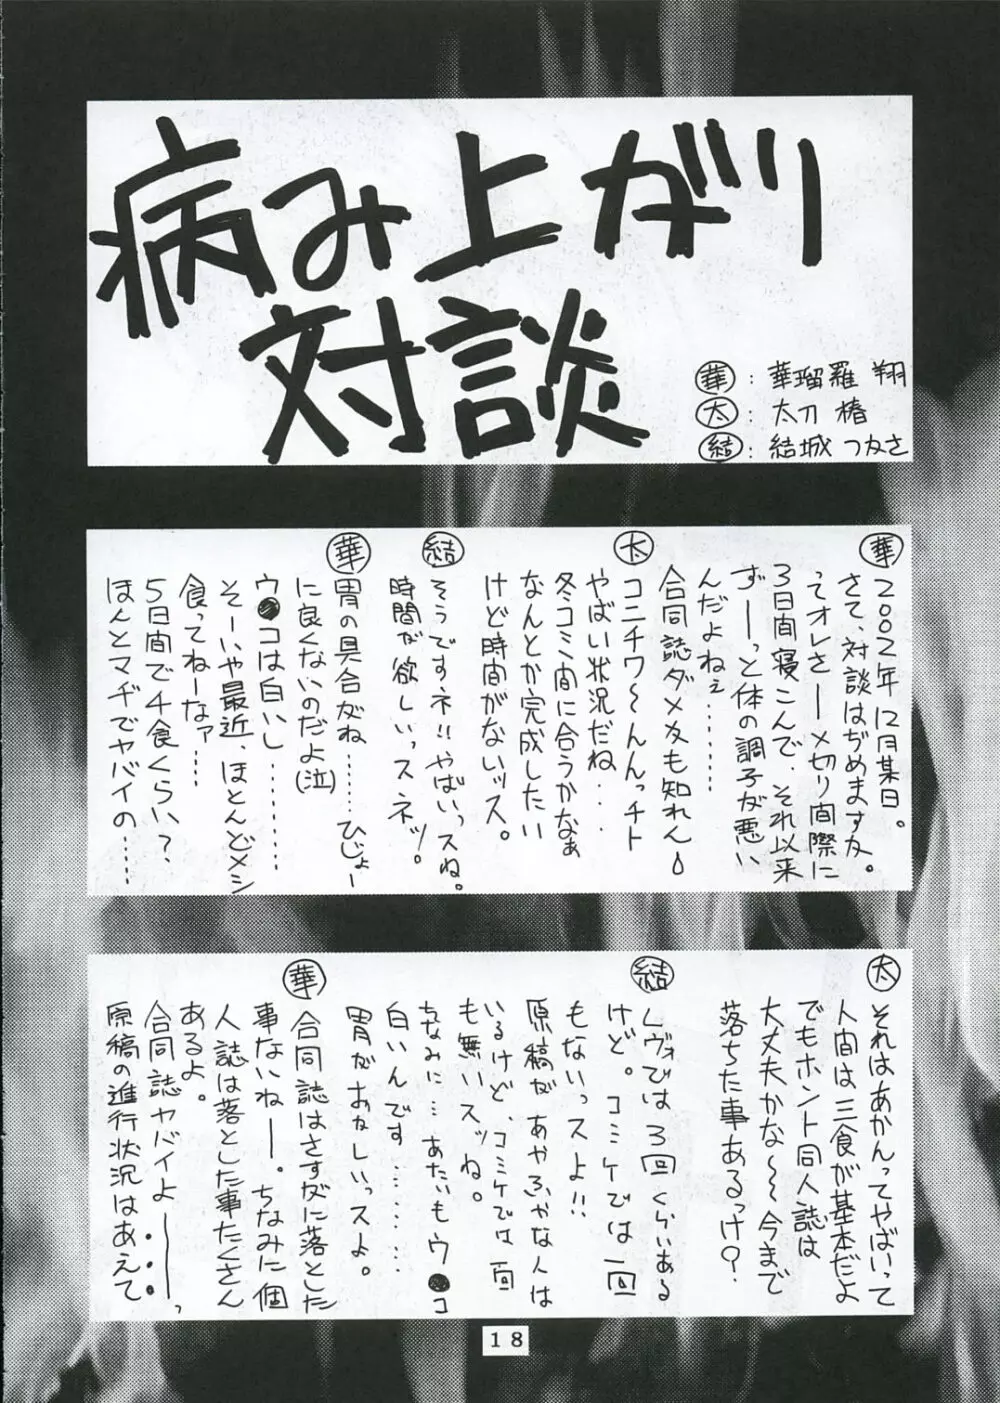 病み上がり
対談
華：華瑠羅 翔
太：太刀 椿
結：結城 つなさ
華
2002年12月某日。
さて、対談はぢめますな。
ってオレさ——〆切り間際に
3日間寝こんで、それ以来
ず——っと体の調子が悪い
んだよねぇ……
合同誌ダメかも知れん
太
コニチワ〜んんっチト
やばい状況だね…
冬コミ間に合うかなぁ
なんとか完成したい
けど時間がないッス。
結
そうですネ!!やばいっスね。
時間が欲しいっスネッ。
華
胃の具合がね……ひじょー
に良くないのだよ(泣)
ウ●コは白いし………
そーいや最近、ほとんどメシ
食ってねーなァ…
5日間で4食くらい？
ほんとマヂでヤバイの……
太
それはあかんってやばいって
人間は三食が基本だよ
でもホント同人誌は
大丈夫かな〜〜今まで
落ちた事あるっけ？
結
レヴォでは3回くらいある
けど。コミケでは一回
もないっスよ!!
原稿があやふやな人は
いるけど、コミケでは一回
も無いスッね。
ちなみに…あたいもウ●コ
白いんです………
胃がおかしいっスよ。
華
合同誌はさすがに落とした
事ないね——。ちなみに個
人誌は落とした事たくさん
あるよ。
合同誌ヤバイよ———っ
原稿の進行状況はあえて
18